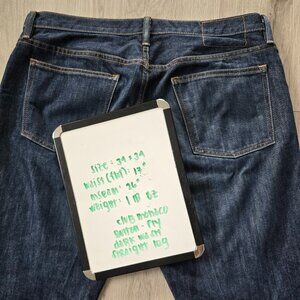 size: 34x34
waist (flat): 17"
inseam: 26"
weight: 1 lb 8z
club monaco
button-fly
dark wash
straight leg